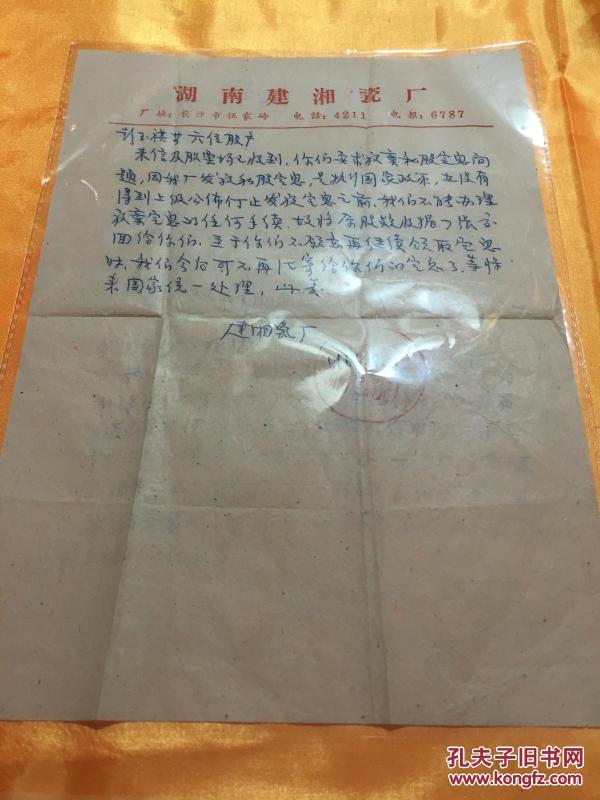 湖南建湘瓷厂
厂址:长沙市伍家岭 电話:4211 电报:6787
六位股户
来信及股票均已收到,你们要求放棄私股定息问
题,因我厂发放私股定息,是执行国家政策,在没有
得到上级公佈停止发放定息之前,我们不能办理
放棄定息的任何手续,故将原股数收据7张寄
回给你们,至于你们不愿意再继续领取定息
时,我们今后可不再汇寄给你们的定息了,等将
来国家统一处理,此复
建湘瓷厂
孔夫子旧书网
www.kongfz.com